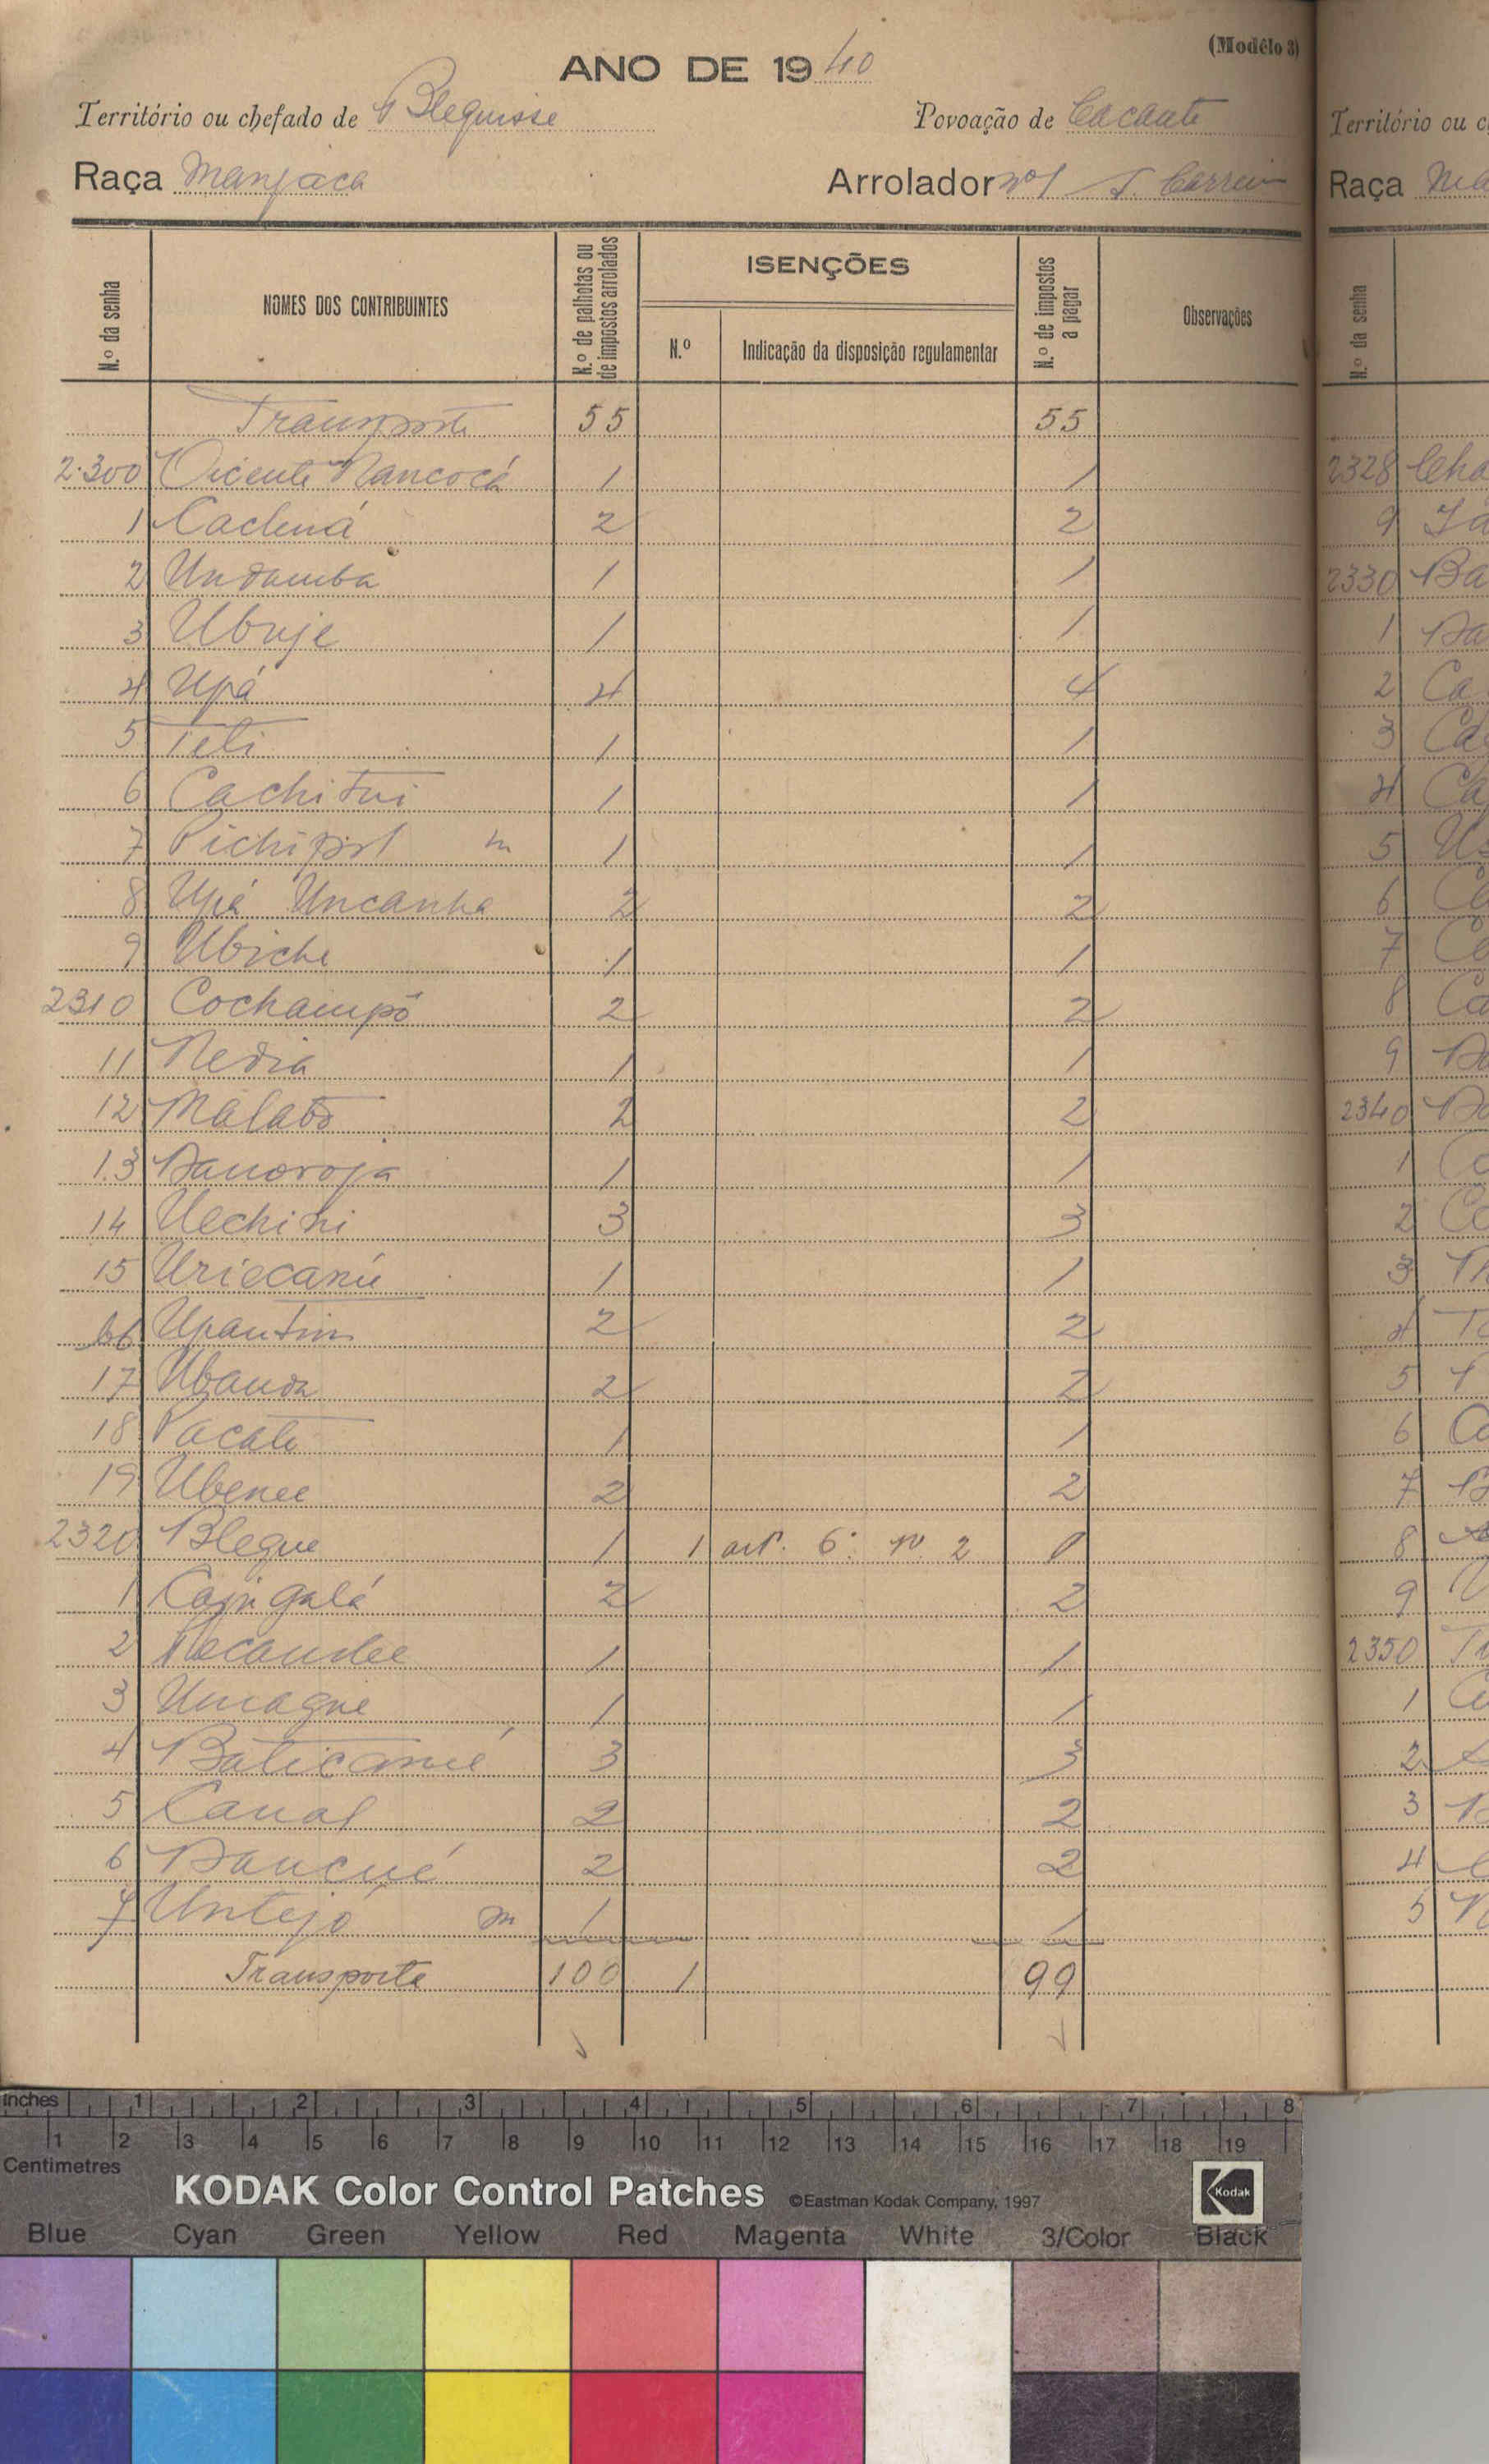 (Modêlo 3)
ANO DE 1940
Território ou chefado de Blequisse Povoação de Cacante
Raça Manjaca Arrolador nº1 J. Carreira
N.º da senha NOMES DOS CONTRIBUINTES N.º de palhotas ou de impostos arrolados ISENÇÕES N.º Indicação da disposição regulamentar N.º de impostos a pagar Observações
Transporte 55 55
2.300 Vicente Nancocá 1 1
1 Cachená 2 2
2 Undamba 1 1
3 Ubuje 1 1
4 Upá 4 4
5 Teti 1 1
6 Cachitui 1 1
7 m 1 1
8 Upá Uncanha 2 2
9 Ubiche 1 1
2310 Cochampô 2 2
11 Nedia 1 1
12 Malabo 2 2
13 1 1
14 3 3
15 Uriecanú 1 1
16 Upantim 2 2
17 Ubanda 2 2
18 Pacate 1 1
19 Ubenee 2 2
2320 Bleque 1 1 art. 6.º nº 2 0
1 2 2
2 1 1
3 Umague 1 1
4 Baticanué 3 3
5 Canal 2 2
6 Dancué 2 2
7 Untejó m 1 1
Transporte 100 1 99
Território ou c
Raça Ma
N.º da senha
2328
9
2330 Ba
1
2 Ca
3
4
5
6
7
8 Ca
9
2340
1
2
3
4
5
6
7
8
9
2350
1
2
3
4
5
inches 1 2 3 4 5 6 7 8
1 2 3 4 5 6 7 8 9 10 11 12 13 14 15 16 17 18 19
Centimetres
KODAK Color Control Patches ©Eastman Kodak Company, 1997 Kodak
Blue Cyan Green Yellow Red Magenta White 3/Color Black